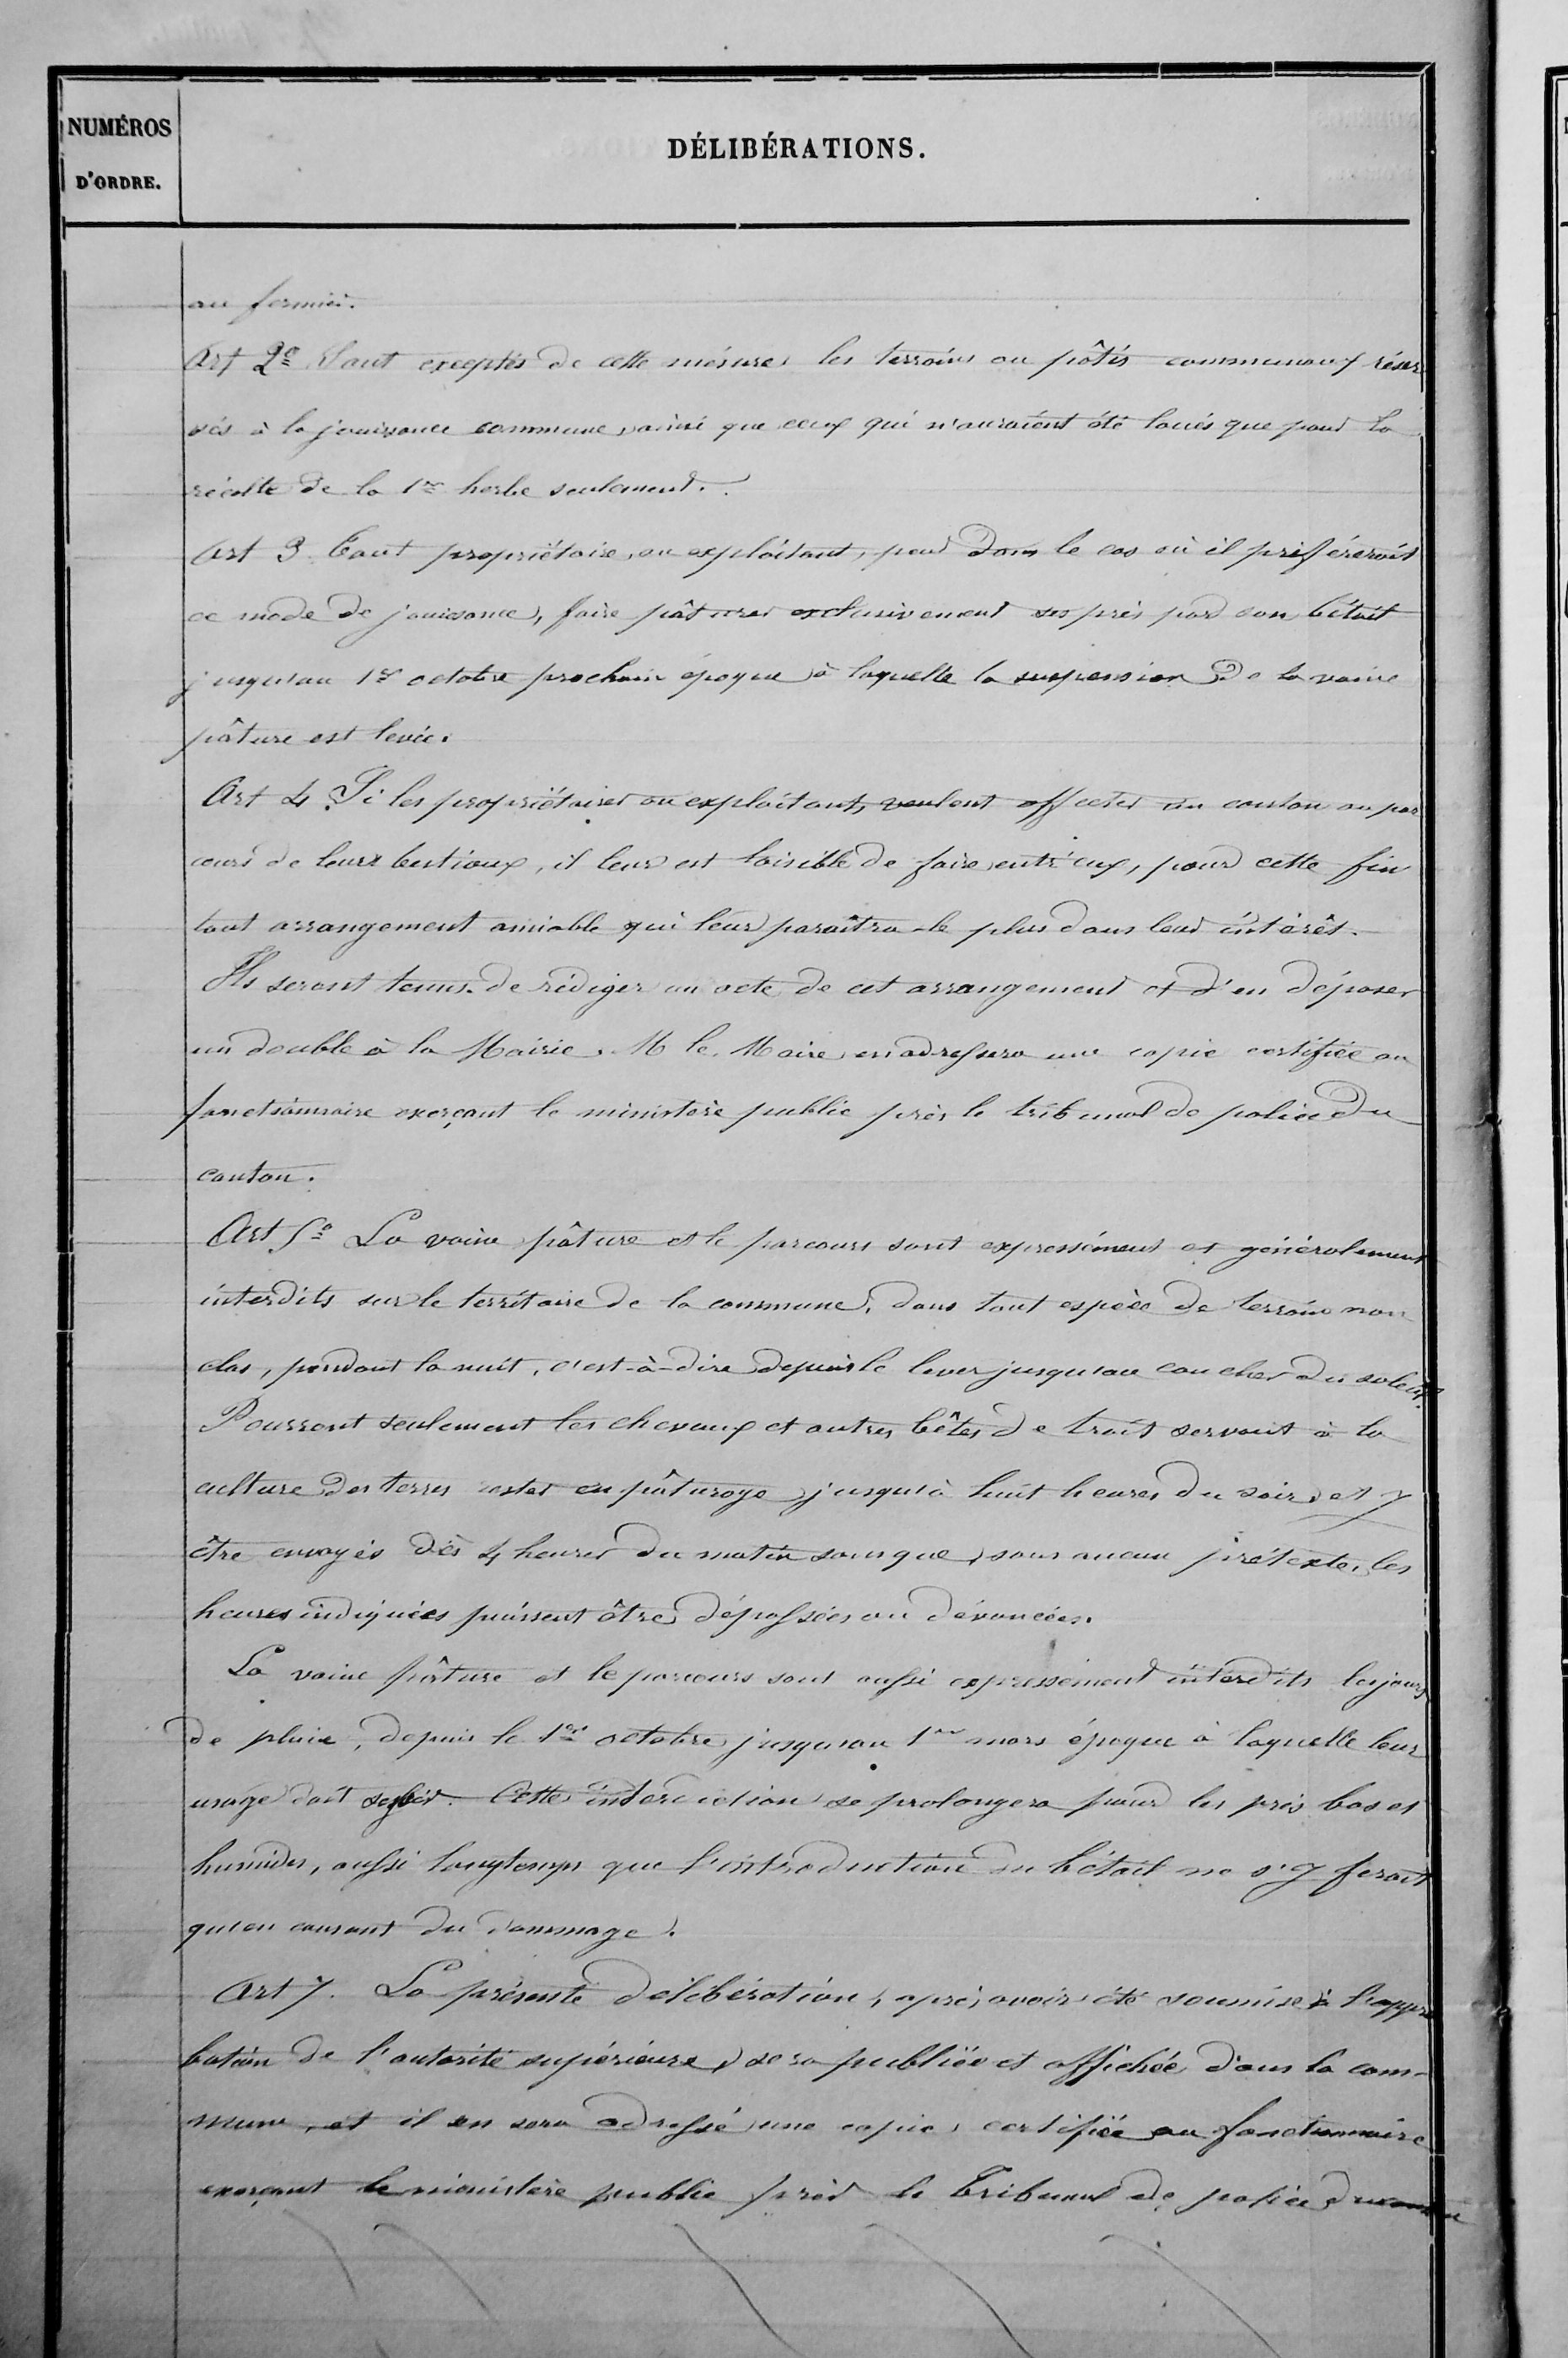 NUMÉROS
D'ORDRE.
DÉLIBÉRATIONS.
au fermier.
Art 2e Sont exceptés de cette mésure les terrains ou pâtis communaux réser
vés à la jouissance commune, ainsi que ceux qui n'auraient été loués que pour la
récolte de la 1re herbe seulement.
Art 3 Tout propriétaire, ou exploitant, peut dans le cas où il préférerait
ce mode de jouissance, faire pâturer exclusivement ses prés par son bétail
jusqu'au 1er octobre prochain époque à laquelle la suspension de la vaine
pâture est levée.
Art 4. Si les propriétaires ou exploitants, veulent affecter un canton au par
cours de leurs bestiaux, il leur est loisible de faire entr'eux, pour cette fin
tout arrangement amiable qui leur paraîtra le plus dans leur intérêt.
Ils seront tenus de rédiger un acte de cet arrangement et d'en déposer
un double à la Mairie. M le Maire en adressera une copie certifiée au
fonctionnaire exerçant le ministère public près le tribunal de police du
canton.
Art 5e La vaine pâture et le parcours sont expressément et généralement
interdits sur le territoire de la commune, dans tout espèce de terrain non
clos, pendant la nuit, c'est-à-dire depuis le lever jusqu'au coucher du soleil.
Pourront seulement les chevaux et autres bêtes de trait servant à la
culture des terres rester en pâturage jusqu'à huit heures du soir et y
être envoyés dès 4 heures du matin sans que, sous aucun prétexte, les
heures indiquées puissent être dépassées ou dévancées.
La vaine pâture et le parcours sont aussi expressément interdits les jours
de pluie, depuis le 1er octobre jusqu'au 1er mars époque à laquelle leur
usage doit Cette interdiction se prolongera pour les prés bas et
humides, aussi longtemps que l'introduction du bétail ne s'y ferait
qu'en causant du dommage.
Art 7. La présente délibération, après avoir été soumise à l'appro
bation de l'autorité supérieure, sera publiée et affichée dans la com-
mune, et il en sera adressé une copie certifiée au fonctionnaire
exerçant le ministère public près le Tribunal de police du canton